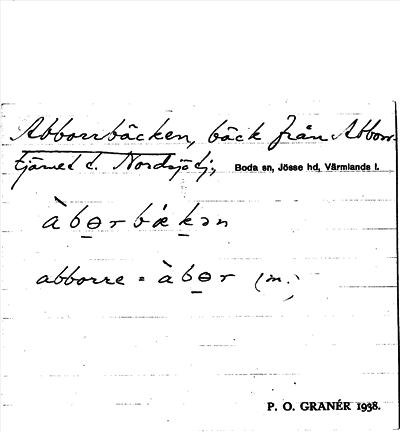 Abborrbäcken, bäck från Abborr-
tjärnet t. Nordsjötj., Boda sn, Jösse hd, Värmlands l.
àbɵrbækən
abborre = àbɵr (m.)
P. O. GRANÉR 1938.